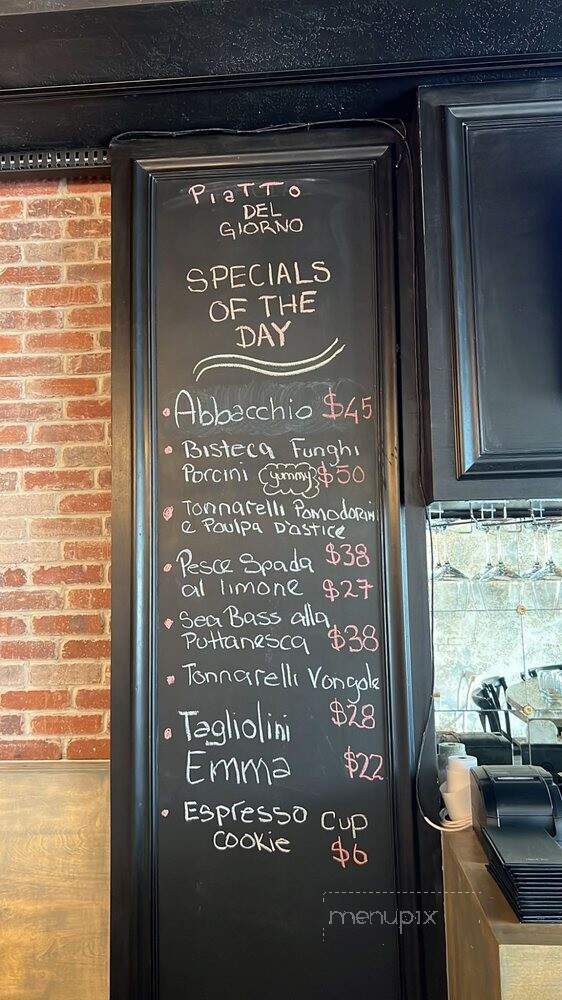 Piatto
DEL
GIORNO
SPECIALS
OF THE
DAY
Abbacchio $45
Bisteca Funghi
Porcini yummy $50
Tonnarelli Pomodorini
e Poulpa D'astice
$38
Pesce Spada
al limone $27
Sea Bass alla
Puttanesca $38
Tonnarelli Vongole
$28
Tagliolini
Emma $22
Espresso Cup
cookie $6
menupix